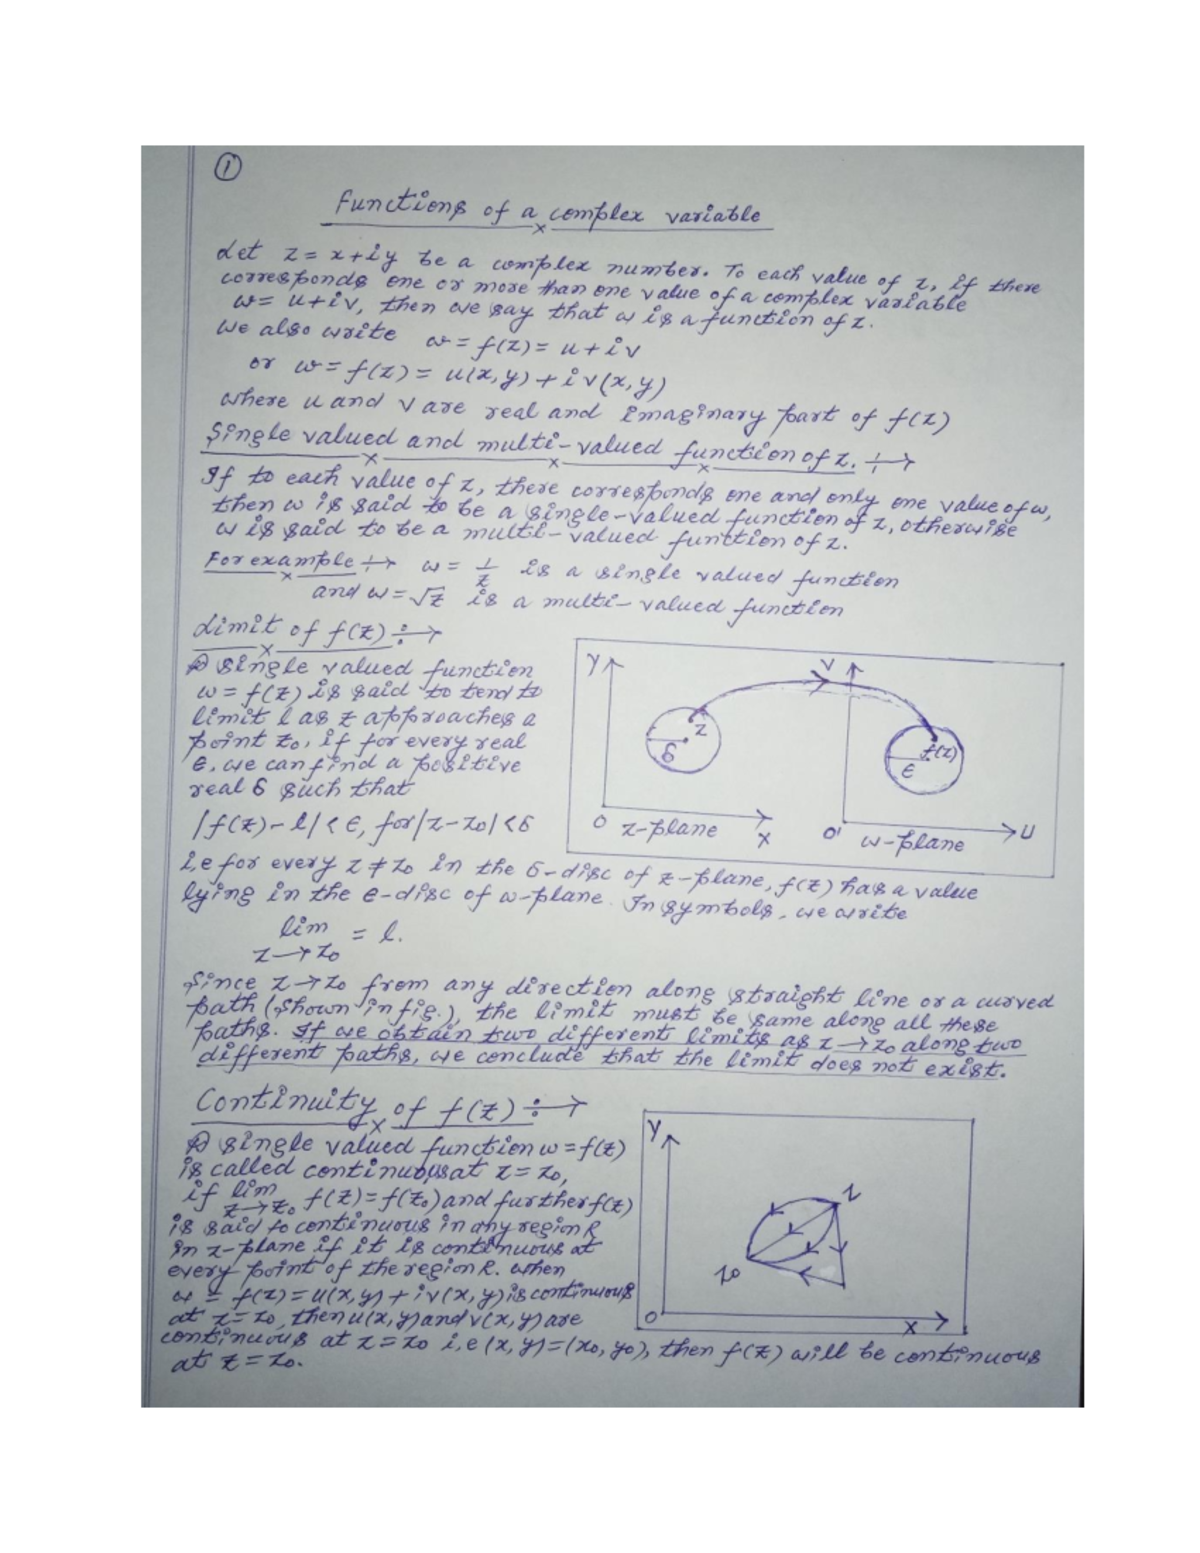 1
Functions of a complex variable
Let z = x+iy be a complex number. To each value of z, if there
corresponds one or more than one value of a complex variable
w = u+iv, then we say that w is a function of z.
We also write w = f(z) = u+iv
or w = f(z) = u(x,y)+iv(x,y)
where u and v are real and imaginary part of f(z)
Single valued and multi-valued function of z. ÷→
If to each value of z, there corresponds one and only one value of w,
then w is said to be a single-valued function of z, otherwise
w is said to be a multi-valued function of z.
For example ÷→ w = 1/z is a single valued function
and w = √z is a multi-valued function
Limit of f(z) ÷→
A single valued function
w = f(z) is said to tend to
limit l as z approaches a
point z₀, if for every real
ϵ, we can find a positive
real δ such that
|f(z)-l|<ϵ, for |z-z₀|<δ
Y
V
z
δ
f(z)
ϵ
O z-plane X
O' w-plane U
i,e for every z ≠ z₀ in the δ-disc of z-plane, f(z) has a value
lying in the ϵ-disc of w-plane. In symbols, we write
lim = l.
z→z₀
Since z→z₀ from any direction along straight line or a curved
path (shown in fig.), the limit must be same along all these
paths. If we obtain two different limits as z→z₀ along two
different paths, we conclude that the limit does not exist.
Continuity of f(z) ÷→
A single valued function w = f(z)
is called continuous at z = z₀,
if lim z→z₀ f(z) = f(z₀) and further f(z)
is said to continuous in any region R
in z-plane if it is continuous at
every point of the region R. when
w = f(z) = u(x,y)+iv(x,y) is continuous
at z = z₀, then u(x,y) and v(x,y) are
continuous at z = z₀ i,e (x,y)=(x₀,y₀), then f(z) will be continuous
at z = z₀.
Y
z
z₀
O
X